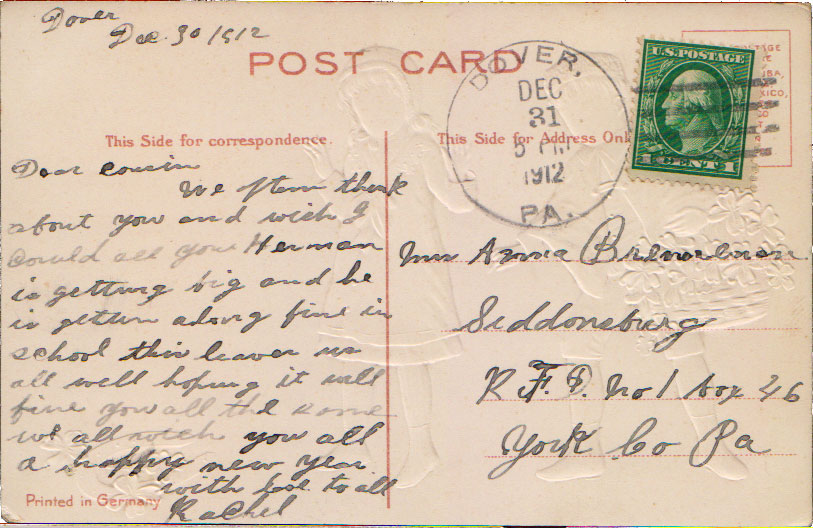 Dover
Dec. 30 1912
POST CARD
DOVER,
DEC
31
5 PM
1912
PA.
U.S. POSTAGE
1 CENTS 1
This Side for correspondence.
This Side for Address Onl
Dear cousin
We often think
about you and wish I
could all you Herman
is getting big and he
is getten along fine in
school this leaves us
all well hoping it will
fine you all the same
we all wish you all
a happy new year
with love to all
Rachel
Printed in Germany
Anna
Siddonsburg
R. F. D. No 1 box 26
York Co Pa